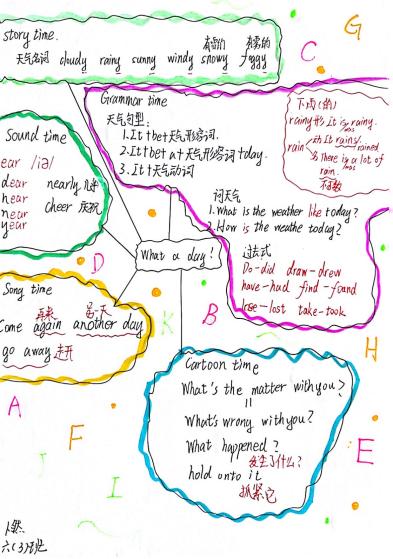 story time.
有雪的 有雾的
天气名词 cloudy rainy sunny windy snowy foggy
Grammar time
天气句型:
1.It+be+天气形容词.
2.It+be+a+天气形容词+day.
3.It+天气动词
下雨(的)
rainy 形 It is rainy.
was
rain 动 It rains/
rained
名 there is a lot of
was
rain.
不可数
问天气
1.What is the weather like today?
2.How is the weathe today?
过去式
Do-did draw-drew
have-had find-found
lose-lost take-took
Sound time
ear /iə/
dear nearly 几乎
hear cheer 庆祝
near
year
What a day!
Song time
再来 另一天
Come again another day
go away 走开
Cartoon time
What's the matter with you?
=
What's wrong with you?
What happened?
发生了什么?
hold onto it
抓紧它
G
C
D
K
B
H
A
F
E
I
J
六(3)班